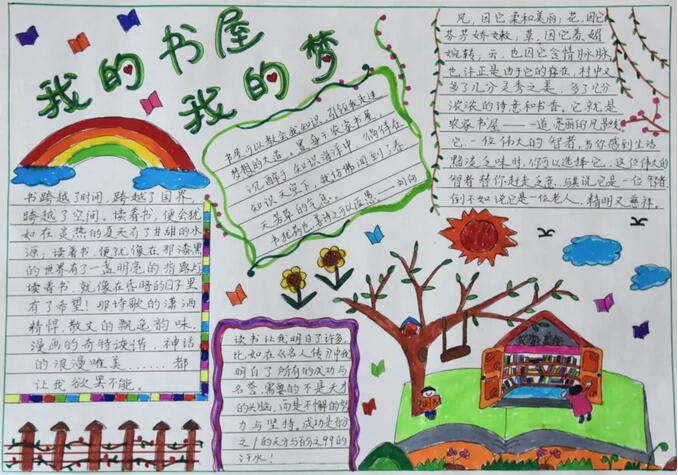 我的书屋
我的梦
书跨越了时间，跨越了国界，
跨越了空间。读着书，便会犹
如在炎热的夏天有了甘甜的水
源；读着书，便就像在那漆黑
的世界有了一盏明亮的指路灯
读着书，就像在昏暗的日子里
有了希望！那诗歌的潇洒
精悍，散文的飘逸韵味，
漫画的奇特诙谐，神话
的浪漫唯美……都
让我欲罢不能。
书屋可以教会我知识，引领我走进
梦想的大道。置身于农家书屋，
沉醉于知识海洋中，徜徉在
知识天空下，我仿佛闻到了春
天芳草的气息。
书犹药也，善读之可以医愚。——刘向
凡，因它柔和美丽；花，因它
芬芳娇嫩；草，因它柔媚
婉转；云，也因它含情脉脉
也许正是由于它的存在，村中又
多了几分灵秀之美，多了几分
浓浓的诗意和书香。它就是
农家书屋——一道亮丽的风景线。
它一位伟大的智者，当你感到生活
黯淡乏味时，你可以选择它，这位伟大的
智者替你赶走乏意。与其说它是一位智者
倒不如说它是一位老人，精明又慈祥。
读书让我明白了许多，
比如在《名人传》中我
明白了所有的成功与
名誉，需要的不是天才
的头脑，而是不懈的努
力与坚持。成功是百分
之1的天分与百分之99的
汗水！